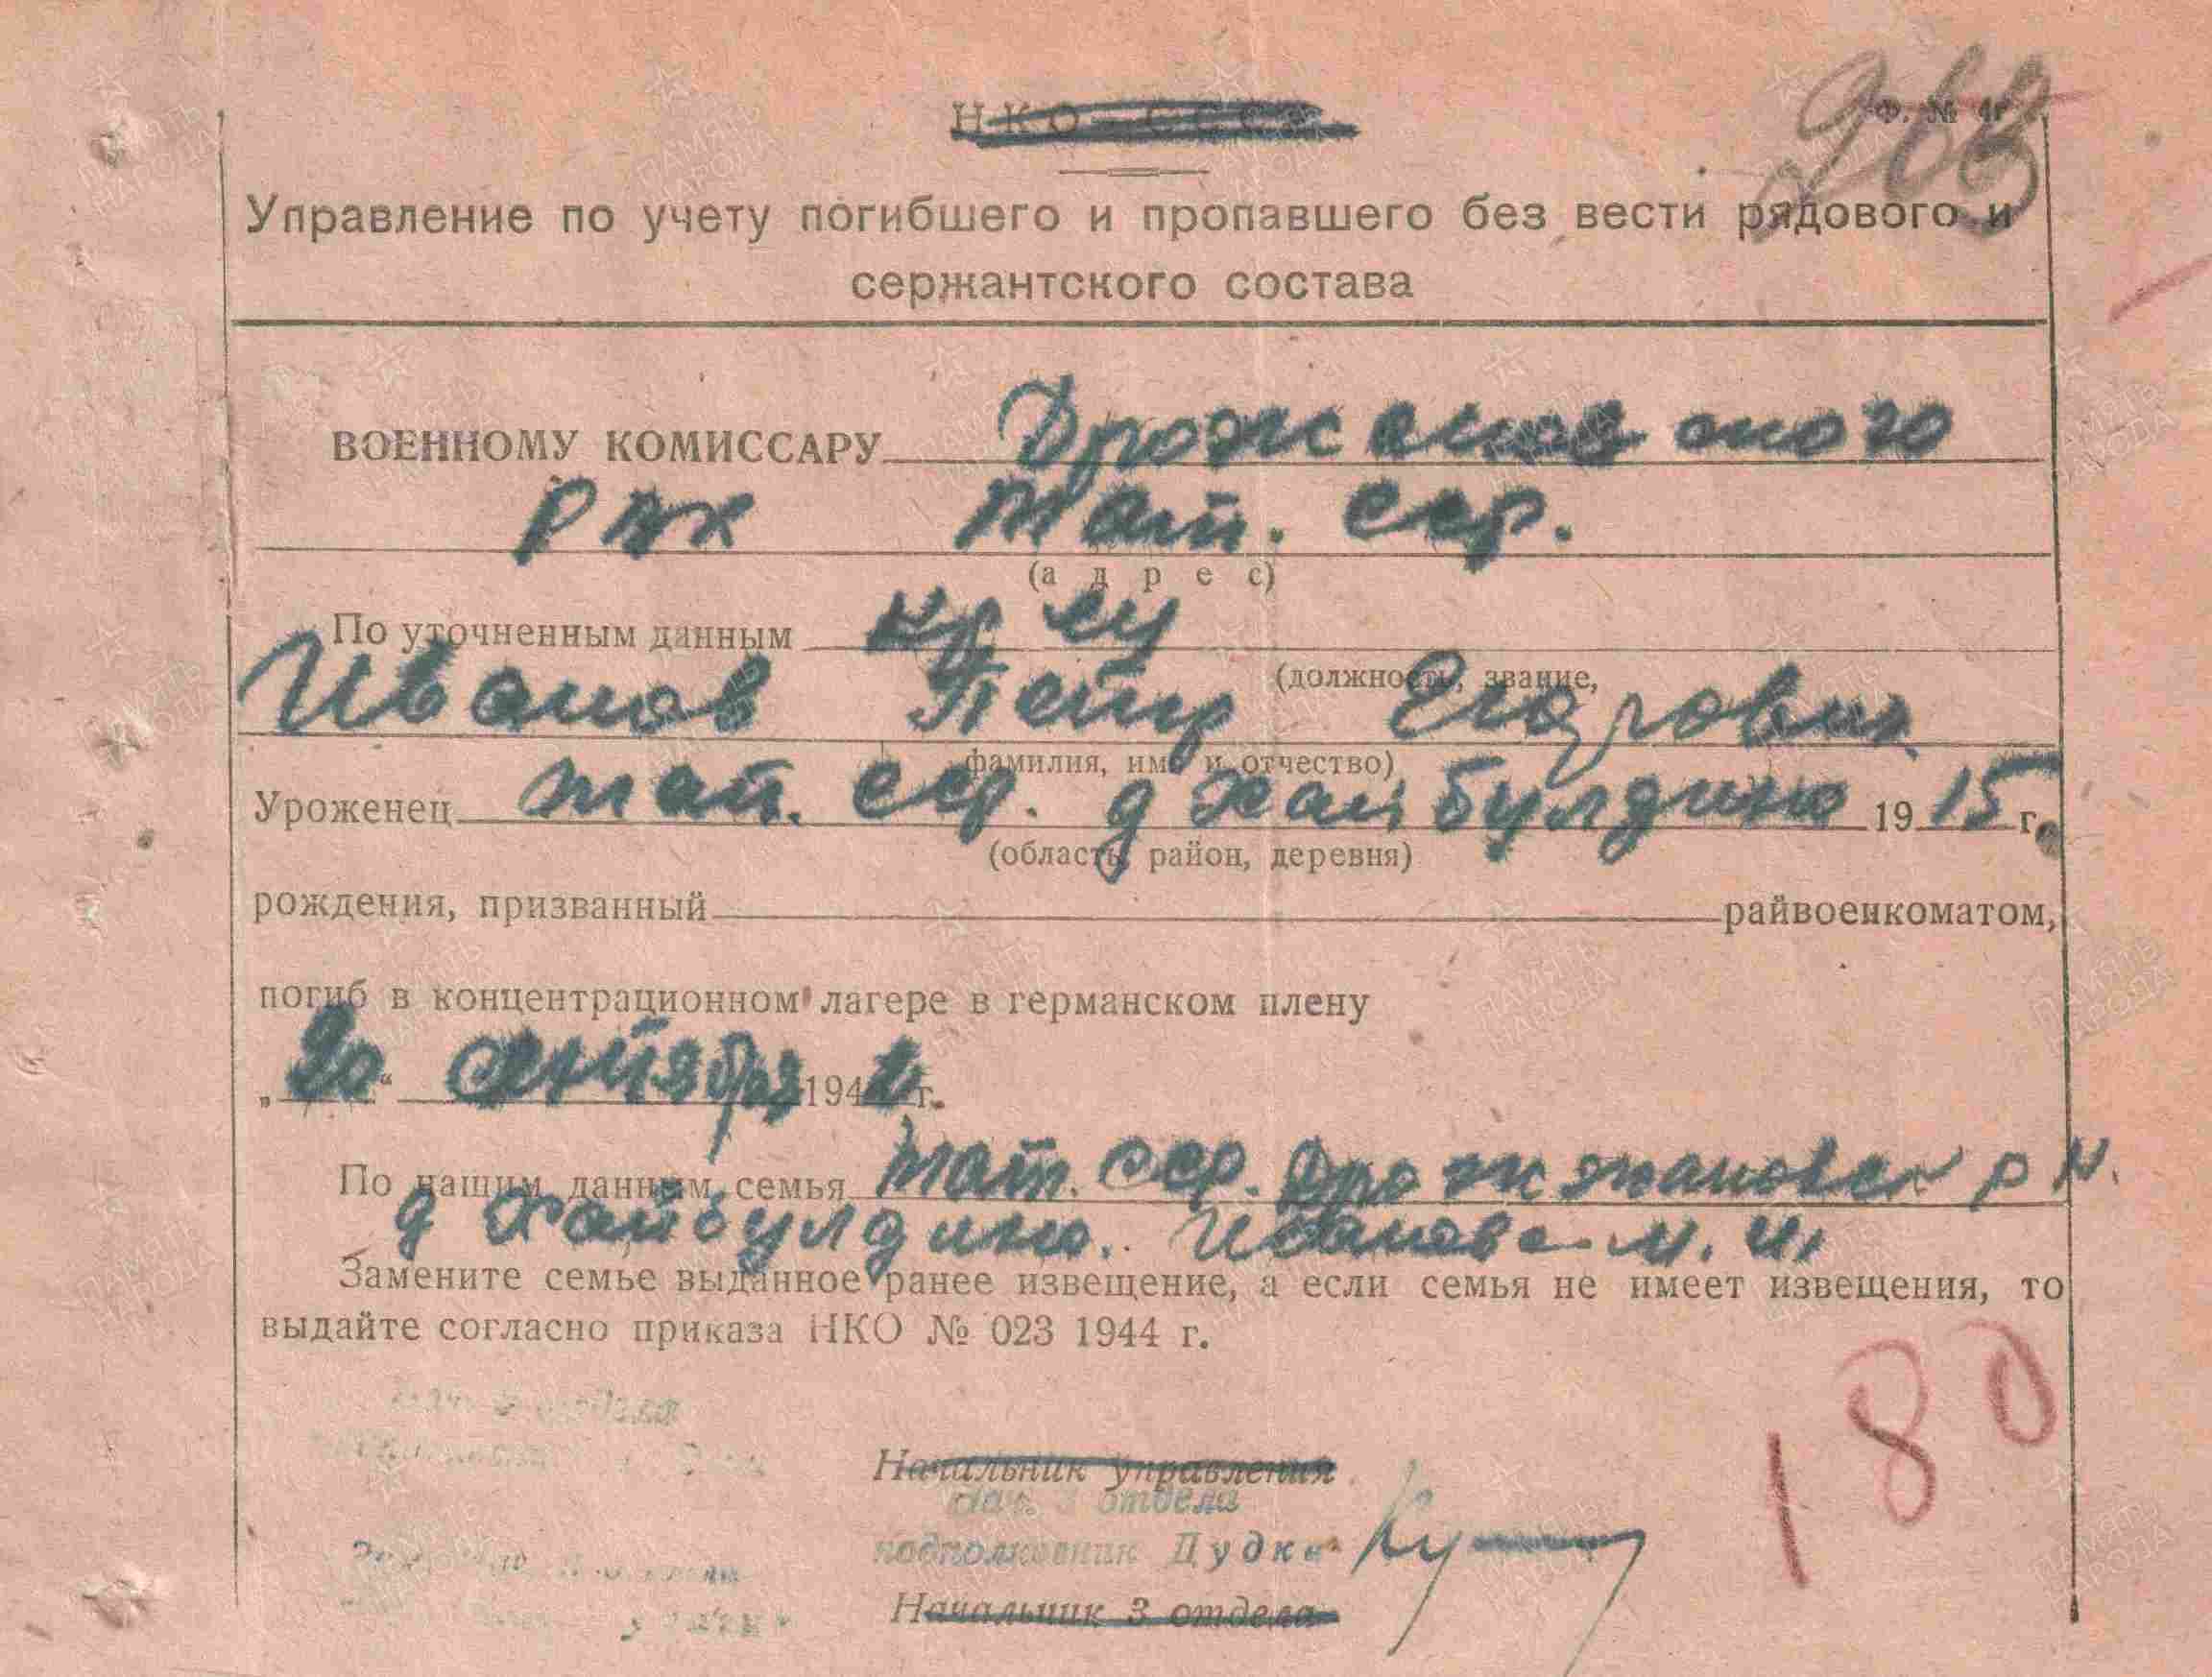 НКО СССР
Ф. № 4г
Управление по учету погибшего и пропавшего без вести рядового и
сержантского состава
ВОЕННОМУ КОМИССАРУ Дрожжановского
РВК Тат. сср.
(адрес)
По уточненным данным кр му
(должность, звание,
Иванов Петр Егорович
фамилия, имя и отчество)
Уроженец Тат. сср. д Хайбулдино 19 15 г.
(область, район, деревня)
рождения, призванный райвоенкоматом,
погиб в концентрационном лагере в германском плену
„20“ сентября 1942 г.
По нашим данным семья Тат. сср. Дрожжановск р н.
д Хайбулдино. Иванова М. И.
Замените семье выданное ранее извещение, а если семья не имеет извещения, то
выдайте согласно приказа НКО № 023 1944 г.
Начальник управления
Нач. 3 отдела
подполковник Дудка
Начальник 3 отдела
180